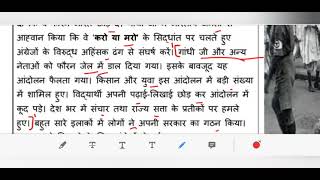 आह्वान किया कि वे 'करो या मरो' के सिद्धांत पर चलते हुए
अंग्रेजों के विरुद्ध अहिंसक ढंग से संघर्ष करें। गांधी जी और अन्य
नेताओं को फौरन जेल में डाल दिया गया। इसके बावजूद यह
आंदोलन फैलता गया। किसान और युवा इस आंदोलन में बड़ी संख्या
में शामिल हुए। विद्यार्थी अपनी पढ़ाई-लिखाई छोड़ कर आंदोलन में
कूद पड़े। देश भर में संचार तथा राज्य सत्ता के प्रतीकों पर हमले
हुए। बहुत सारे इलाकों में लोगों ने अपनी सरकार का गठन किया।